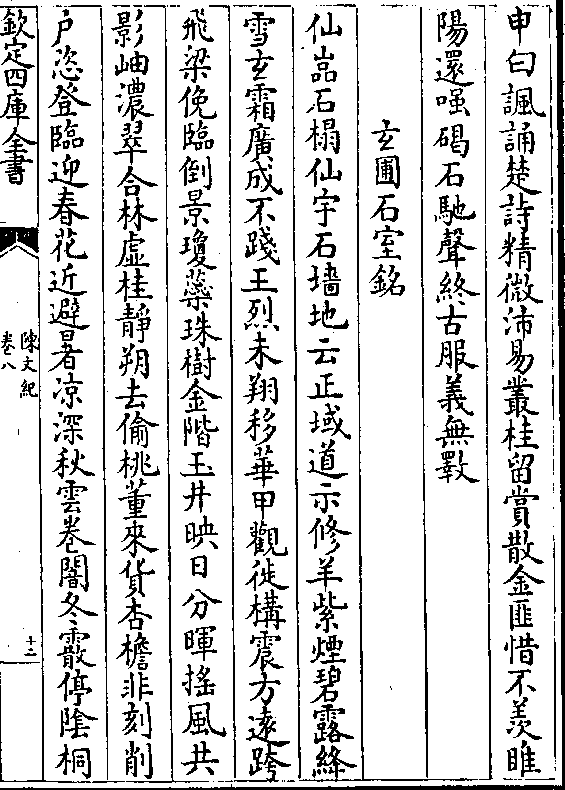 申曰諷誦楚詩精微沛易叢桂留賞散金匪惜不羨睢
陽還嗤碣石馳聲終古服義無斁
玄圃石室銘
仙嵓石榻仙宇石墻地云正域道示修羊紫煙碧露絳
雪玄霜廣成不踐王烈未翔移華甲觀徙構震方遠跨
飛梁俛臨倒景瓊蘂珠樹金階玉井映日分暉搖風共
影岫濃翠合林虛桂靜朔去偷桃董來貨杏檐非刻削
户恣登臨迎春花近避暑凉深秋雲卷闇冬霰停陰桐
欽定四庫全書
陳文紀
卷八
十二